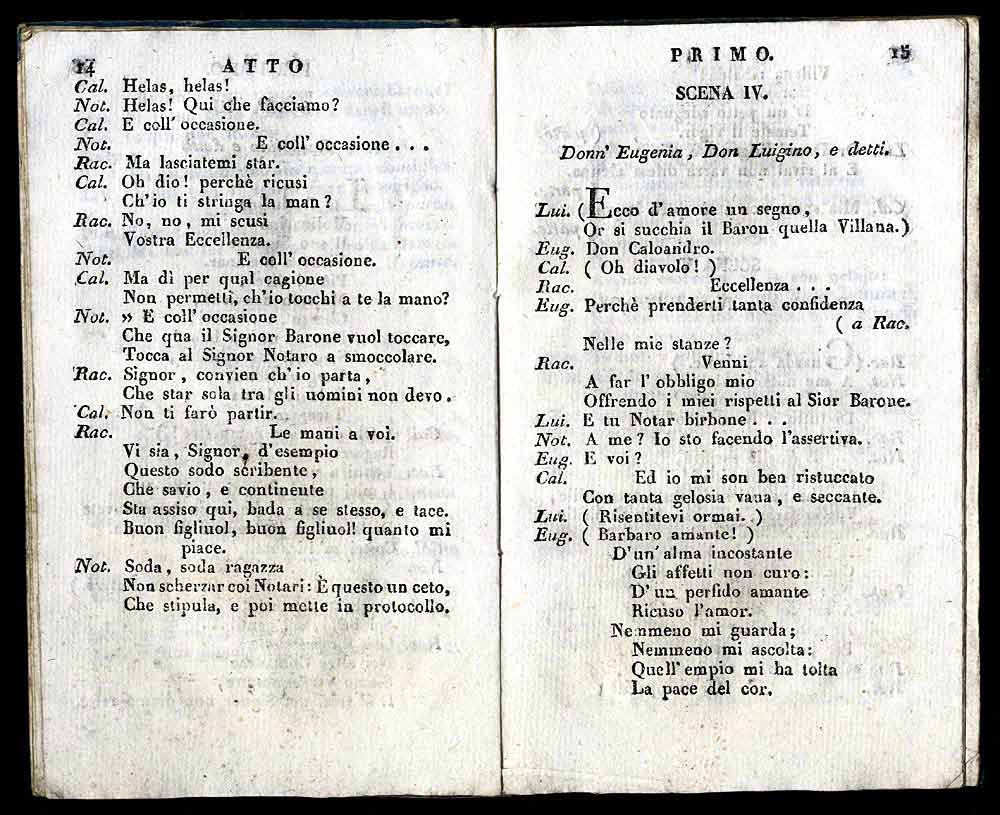 14 ATTO
Cal. Helas, helas!
Not. Helas! Qui che facciamo?
Cal. E coll' occasione.
Not. E coll' occasione . . .
Rac. Ma lasciatemi star.
Cal. Oh dio! perchè ricusi
Ch'io ti stringa la man?
Rac. No, no, mi scusi
Vostra Eccellenza.
Not. E coll' occasione.
Cal. Ma dì per qual cagione
Non permetti, ch'io tocchi a te la mano?
Not. » E coll' occasione
Che qua il Signor Barone vuol toccare,
Tocca al Signor Notaro a smoccolare.
Rac. Signor, convien ch' io parta,
Che star sola tra gli uomini non devo.
Cal. Non ti farò partir.
Rac. Le mani a voi.
Vi sia, Signor, d'esempio
Questo sodo scribente,
Che savio, e continente
Sta assiso qui, bada a se stesso, e tace.
Buon figliuol, buon figliuol! quanto mi
piace.
Not. Soda, soda ragazza
Non scherzar coi Notari: È questo un ceto,
Che stipula, e poi mette in protocollo.
PRIMO. 15
SCENA IV.
Donn' Eugenia, Don Luigino, e detti.
Lui. (Ecco d'amore un segno,
Or si succhia il Baron quella Villana.)
Eug. Don Caloandro.
Cal. ( Oh diavolo! )
Rac. Eccellenza . . .
Eug. Perchè prenderti tanta confidenza
( a Rac.
Nelle mie stanze?
Rac. Venni
A far l' obbligo mio
Offrendo i miei rispetti al Sior Barone.
Lui. E tu Notar birbone . . .
Not. A me? Io sto facendo l'assertiva.
Eug. E voi?
Cal. Ed io mi son ben ristuccato
Con tanta gelosia vana, e seccante.
Lui. ( Risentitevi ormai. )
Eug. ( Barbaro amante! )
D'un' alma incostante
Gli affetti non curo:
D' un perfido amante
Ricuso l'amor.
Nemmeno mi guarda;
Nemmeno mi ascolta:
Quell' empio mi ha tolta
La pace del cor.